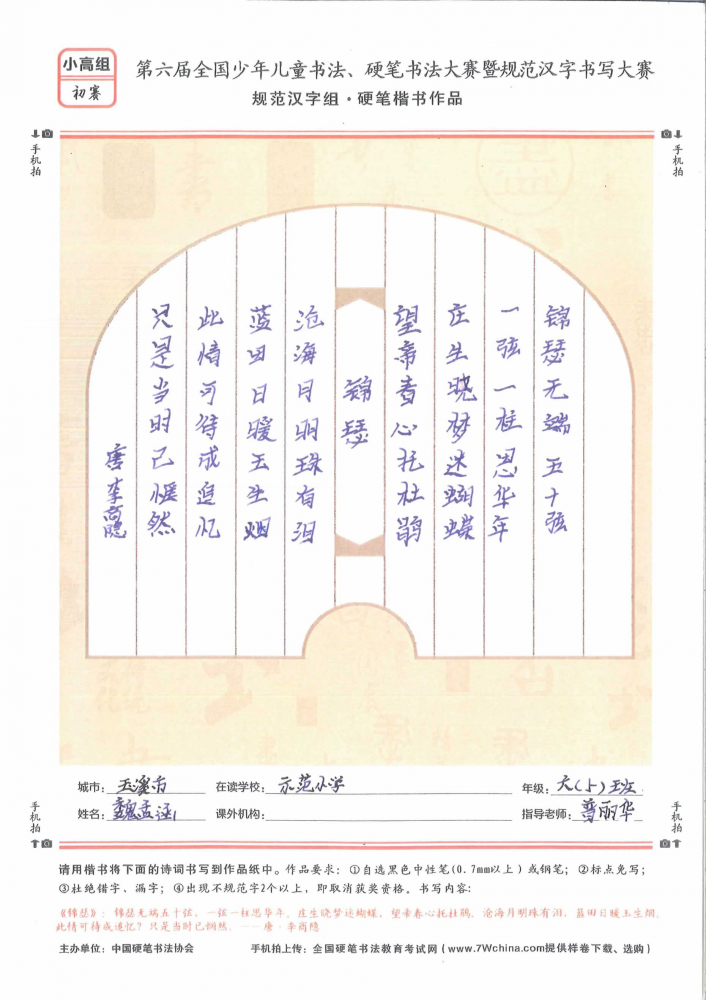 小高组
初赛
第六届全国少年儿童书法、硬笔书法大赛暨规范汉字书写大赛
规范汉字组·硬笔楷书作品
手机拍
手机拍
锦瑟无端五十弦
一弦一柱思华年
庄生晓梦迷蝴蝶
望帝春心托杜鹃
锦瑟
沧海月明珠有泪
蓝田日暖玉生烟
此情可待成追忆
只是当时已惘然
唐李商隐
城市：玉溪市 在读学校：示范小学 年级：六(上)班
姓名：魏孟涵 课外机构： 指导老师：普丽华
手机拍
手机拍
请用楷书将下面的诗词书写到作品纸中。作品要求：①自选黑色中性笔(0.7mm以上)或钢笔；②标点免写；
③杜绝错字、漏字；④出现不规范字2个以上，即取消获奖资格。书写内容：
《锦瑟》：锦瑟无端五十弦，一弦一柱思华年。庄生晓梦迷蝴蝶，望帝春心托杜鹃。沧海月明珠有泪，蓝田日暖玉生烟。
此情可待成追忆？只是当时已惘然。——唐·李商隐
主办单位：中国硬笔书法协会 手机拍上传：全国硬笔书法教育考试网(www.7Wchina.com提供样卷下载、选购)